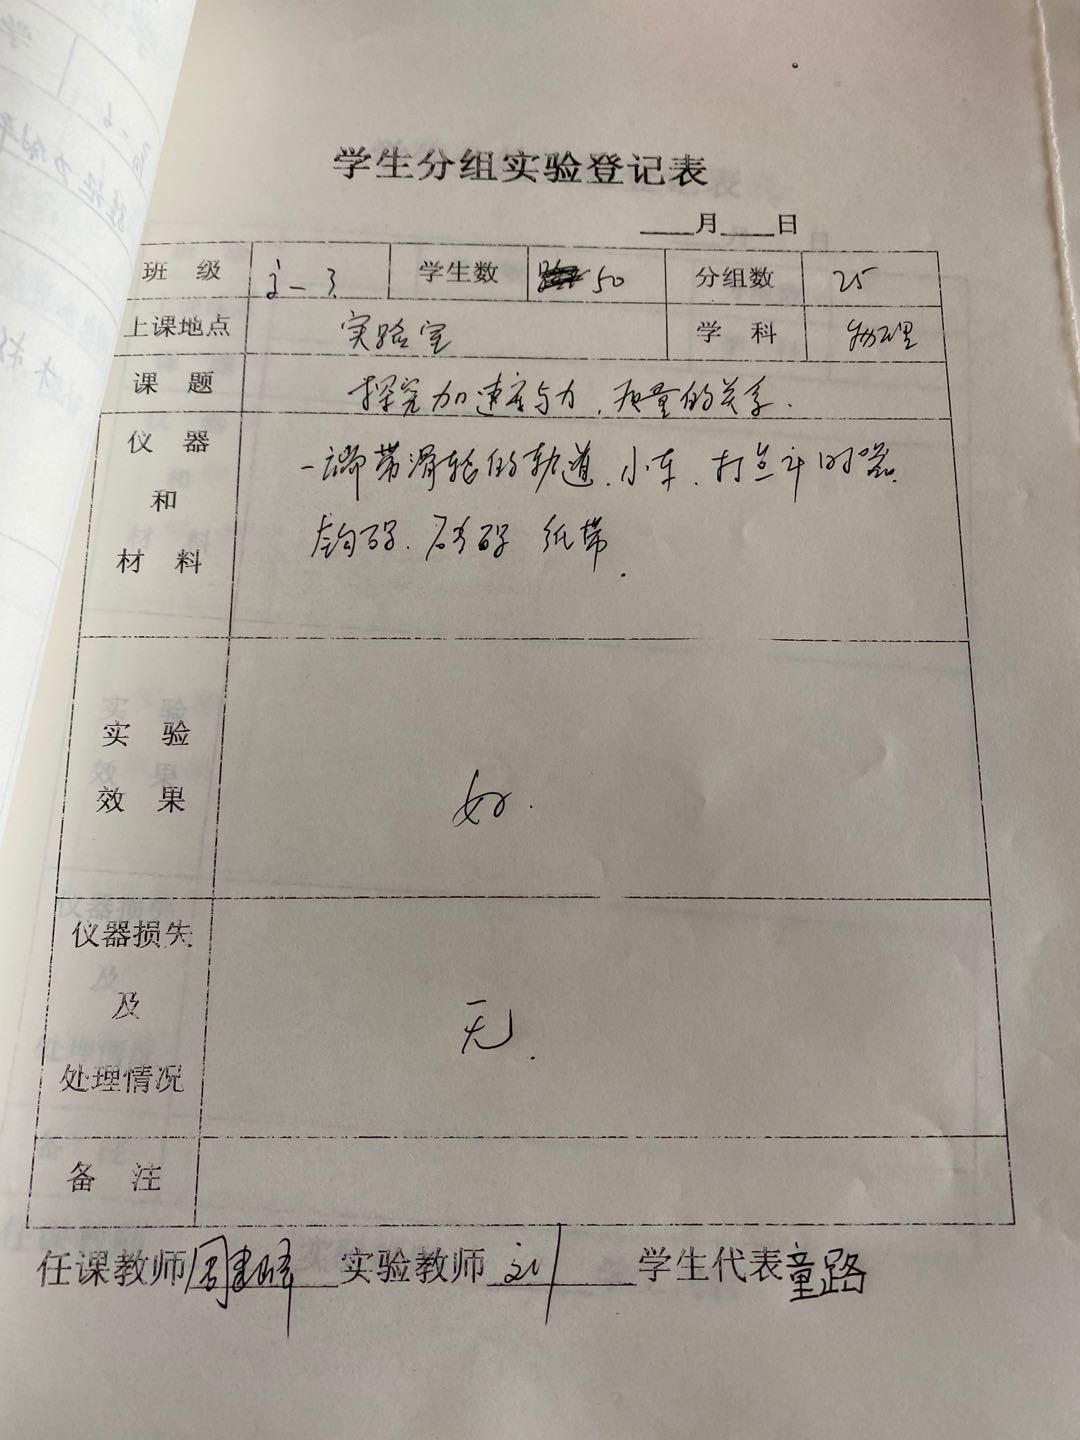 学生分组实验登记表
____月____日
班 级 学生数 50 分组数 25
上课地点 实验室 学 科 物理
课 题 探究加速度与力、质量的关系.
仪 器 和 材 料 一端带滑轮的轨道、小车、打点计时器
钩码、砝码 纸带.
实 验 效 果 好.
仪器损失 及 处理情况 无.
备 注
任课教师 周 实验教师 刘 学生代表 童路